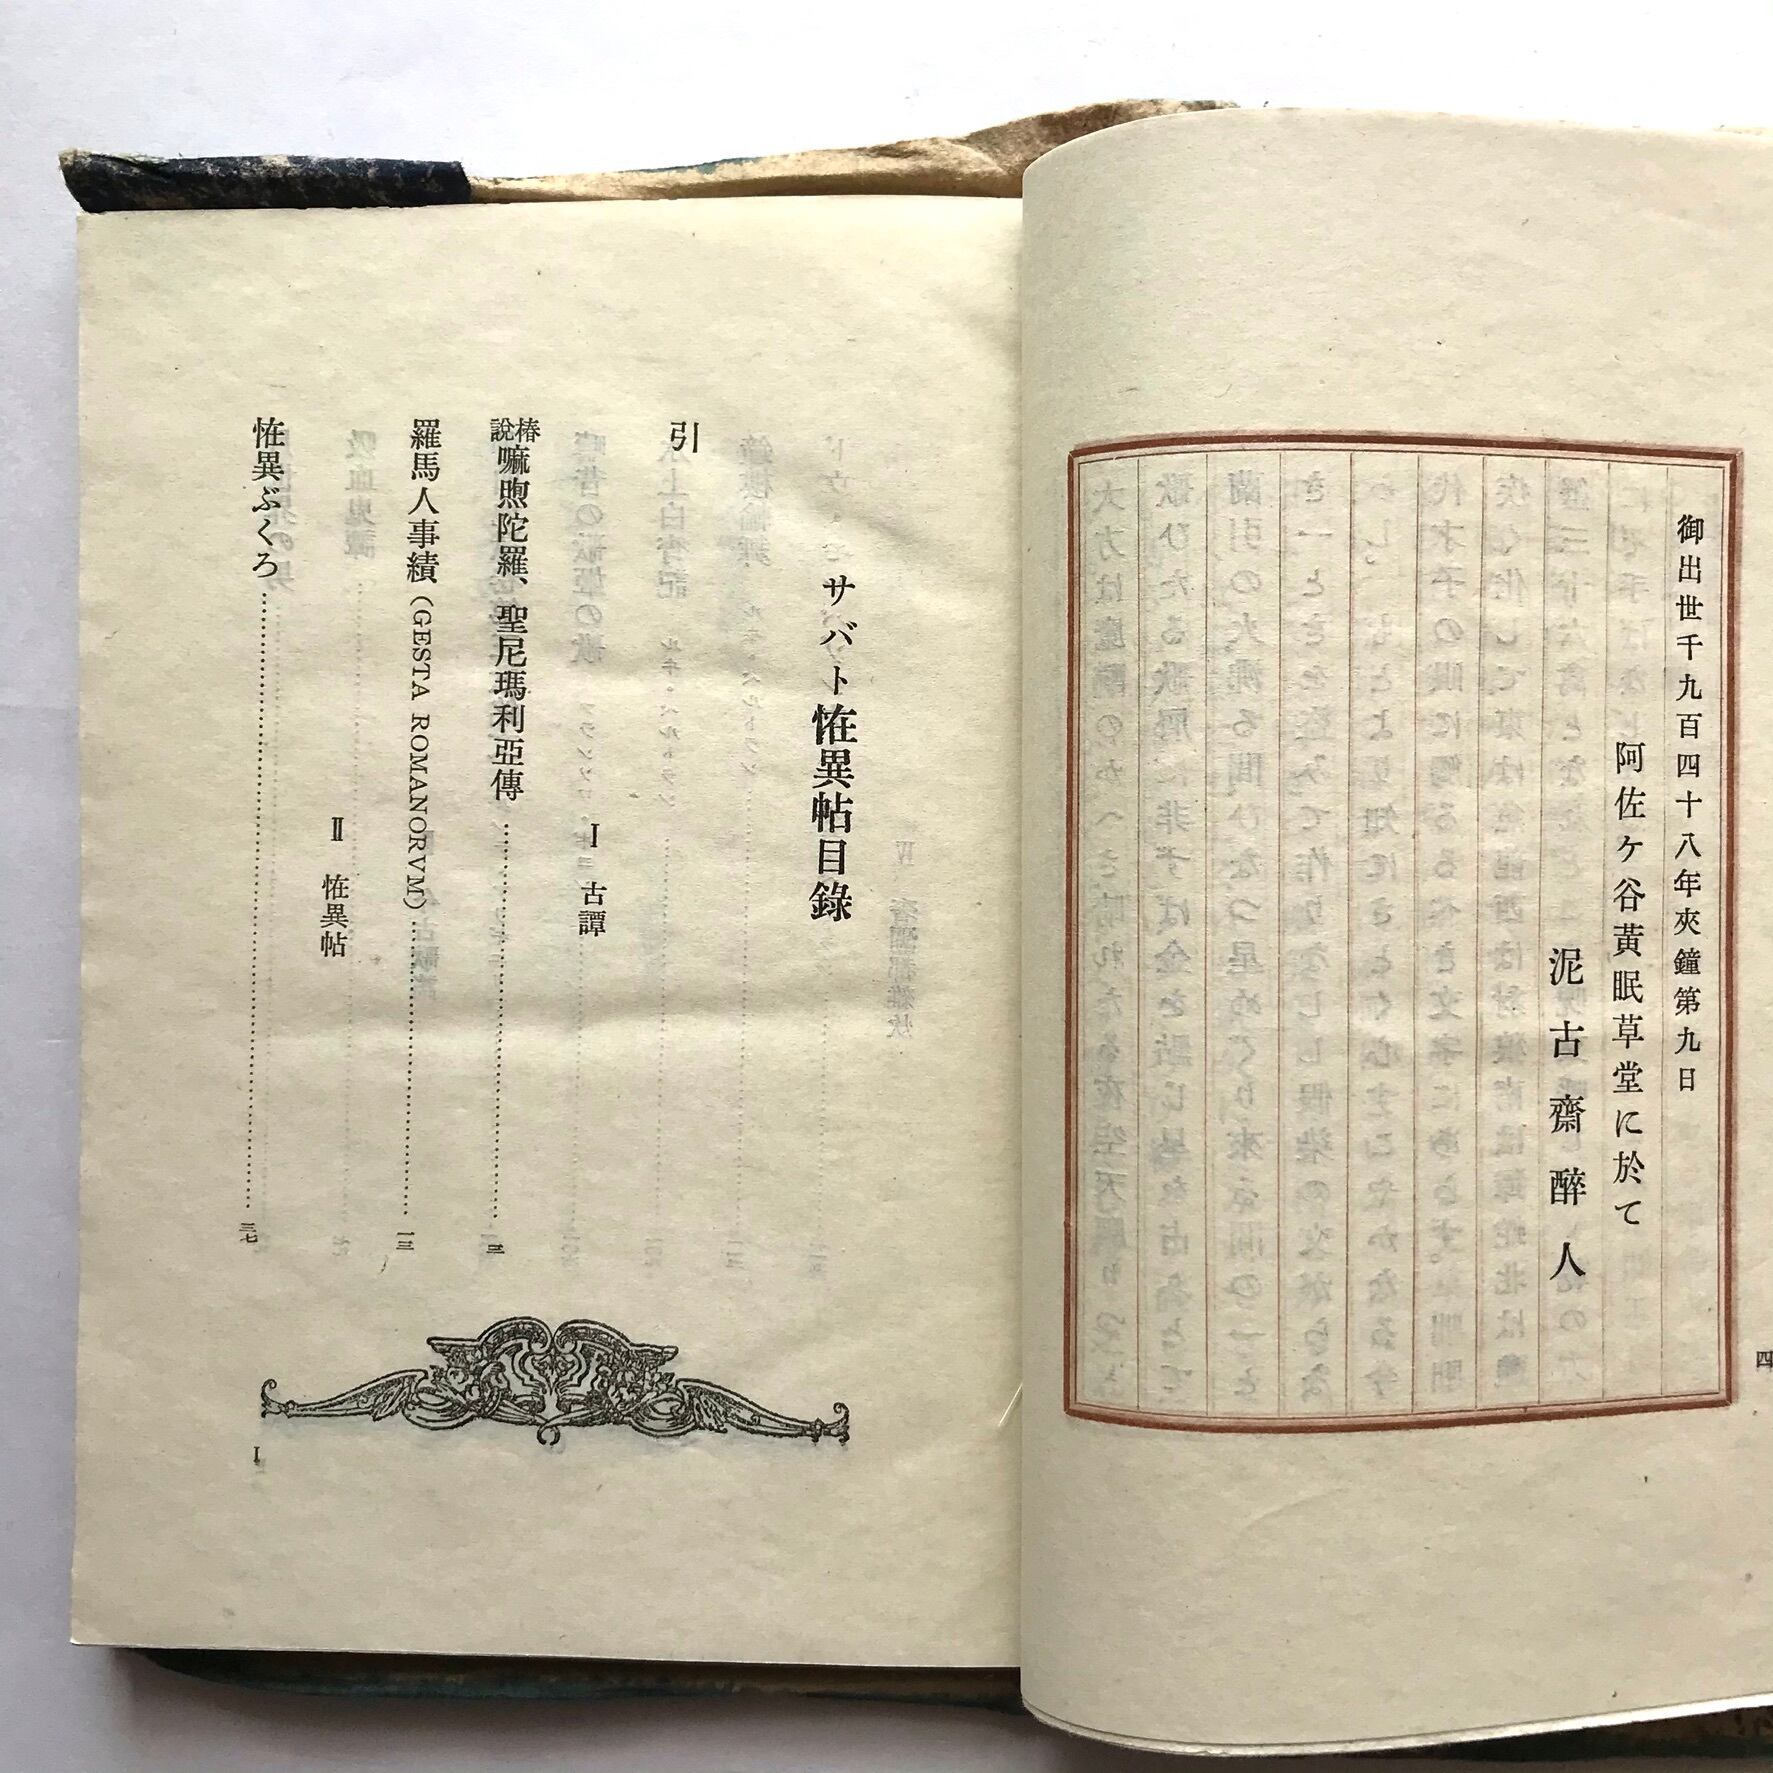 御出世千九百四十八年夾鐘第九日
阿佐ケ谷黃眠草堂に於て
泥古齋醉人
四
サバト恠異帖目錄
引
I 古譚
椿說嘛煦陀羅、聖尼瑪利亞傳……三
羅馬人事績（GESTA ROMANORVM）……一三
II 恠異帖
恠異ぶくろ……三七
I